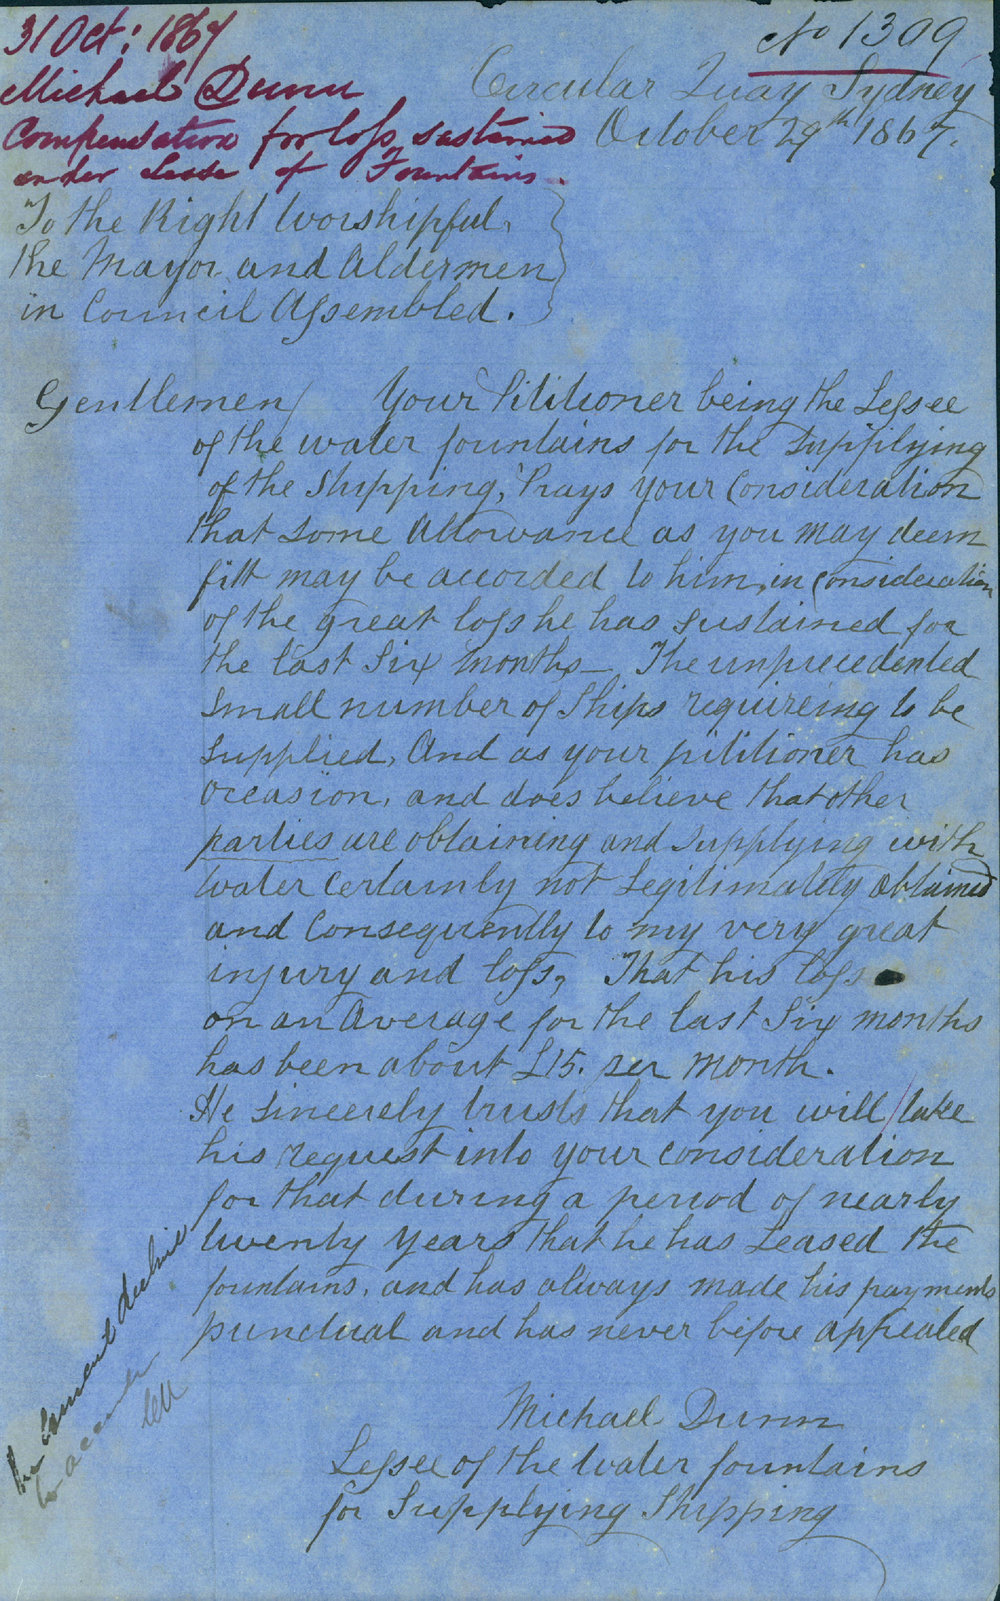 31 Oct: 1867
Michael Dunn
Compensation for loss sustained
under Lease of Fountains.
No 1309
Circular Quay Sydney
October 29th 1867.
To the Right Worshipful,
the Mayor and Aldermen
in Council Assembled.
Gentlemen/ Your Pititioner being the Lessee
of the water fountains for the supplying
of the Shipping, Prays your Consideration
that some Allowance as you may deem
fitt may be accorded to him, in Consideration
of the great loss he has sustained for
the last Six Months – The unprecedented
small number of Ships requireing to be
supplied, And as your pititioner has
Occasion, and does believe that other
parties are obtaining and supplying with
water Certainly not Legitimately obtained
and Consequently to my very great
injury and loss, That his loss
on an Average for the last Six months
has been about £15. per Month.
He sincerely trusts that you will take
his request into your consideration
for that during a period of nearly
twenty years that he has Leased the
fountains, and has always made his payments
punctual and has never before appealed
Michael Dunn
Lessee of the water fountains
for Supplying Shipping
The Council decline
to accede